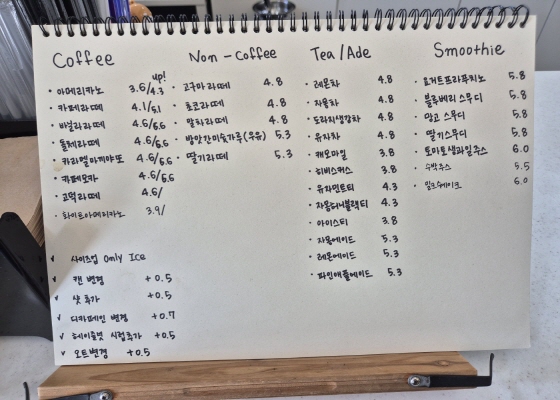 Coffee
up!
• 아메리카노 3.6/4.3
• 카페라떼 4.1/5.1
• 바닐라라떼 4.6/5.6
• 돌체라떼 4.6/5.6
• 카라멜마끼야또 4.6/5.6
• 카페모카 4.6/5.6
• 고덕라떼 4.6/
• 화이트아메리카노 3.9/
✓ 사이즈업 Only Ice
✓ 캔 변경 +0.5
✓ 샷 추가 +0.5
✓ 디카페인 변경 +0.7
✓ 헤이즐넛 시럽추가 +0.5
✓ 오트변경 +0.5
Non-Coffee
• 고구마라떼 4.8
• 초코라떼 4.8
• 말차라떼 4.8
• 방앗간미숫가루(우유) 5.3
• 딸기라떼 5.3
Tea/Ade
• 레몬차 4.8
• 자몽차 4.8
• 도라지생강차 4.8
• 유자차 4.8
• 캐모마일 3.8
• 히비스커스 3.8
• 유자민트티 4.3
• 자몽허니블랙티 4.3
• 아이스티 3.8
• 자몽에이드 5.3
• 레몬에이드 5.3
• 파인애플에이드 5.3
Smoothie
• 요거트프라푸치노 5.8
• 블루베리 스무디 5.8
• 망고 스무디 5.8
• 딸기스무디 5.8
• 토마토생과일주스 6.0
• 수박주스 5.5
• 밀크쉐이크 6.0